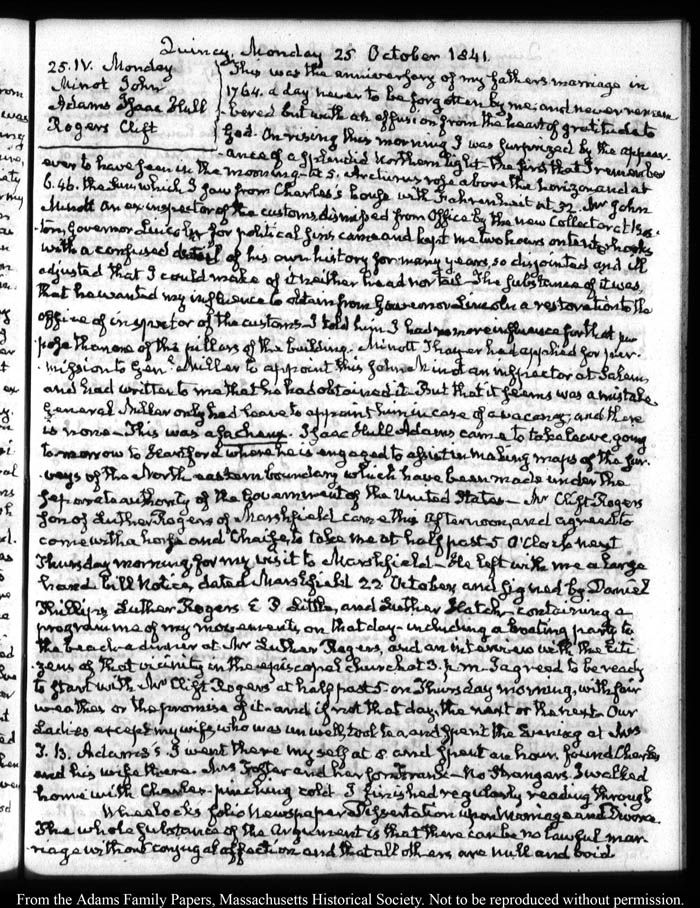 Quincy, Monday 25 October 1841.
25. IV. Monday
Minot John
Adams Isaac Hull
Rogers Clift
This was the anniversary of my fathers marriage in
1764. a day never to be forgotten by me; and never remem
bered but with an effusion from the heart of gratitude to
God. On rising this morning I was surprized by the appear-
ance of a splendid Northern light the first that I remember
ever to have seen in the morning_at 5. Arcturus rose above the horizon and at
6.46. the Sun which I saw from Charles's house with Fahrenheit at 32. Mr John
Minott an ex inspector of the customs dismissed from Office by the new Collector at Bos-
ton, Governor Lincoln for political sins came and kept me two hours on
with a confused detail of his own history for many years so disjointed and ill
adjusted that I could make of it neither head nor tail_The substance of it was,
that he wanted my influence to obtain from Governor Lincoln a restoration to the
office of inspector of the customs_I told him I had no more influence for that pur
pose than one of the pillars of the building. Minott Thayer had applied for per-
-mission to Genl. Miller to appoint this John Minot an inspector at Salem,
and had written to me that he had obtained it. But that it seems was a mistake
General Miller only had leave to appoint him in case of a vacancy, and there
is none_This was a . Isaac Hull Adams came to take leave, going
to-morrow to Hartford where he is engaged to assist in making maps of the sur-
-veys of the North eastern boundary which have been made under the
separate authority of the Government of the United States_Mr Clift Rogers
son of Luther Rogers of Marshfield came this afternoon, and agreed to
come with a horse and Chaise, to take me at half past 5 O'Clock next
Thursday morning, for my visit to Marshfield_He left with me a large
hand bill Notice, dated Marshfield 22 October, and signed by Daniel
Phillips, Luther Rogers E P Little, and Luther Hatch, containing a
programme of my movements on that day_including a boating party to
the beach_a dinner at Mr Luther Rogers, and an interview with the Citi-
zens of that vicinity in the episcopal Church at 3. p.m_I agreed to be ready
to start with Mr Clift Rogers at half past 5_on Thursday morning, with fair
weather or the promise of it_and if not that day, the next or the next_Our
Ladies except my wife, who was unwell, took tea and spent the Evening at Mrs
T. B. Adams's_I went there myself at 8. and spent an hour. found Charles
and his wife there_Mrs Foster and her son Frank_No strangers. I walked
home with Charles_pinching cold I finished regularly reading through
Wheelocks folio Newspaper Dissertation upon Marriage and Divorce.
The whole substance of the Argument is that there can be no lawful mar
riage without conjugal affection and that all others are null and void
From the Adams Family Papers, Massachusetts Historical Society. Not to be reproduced without permission.